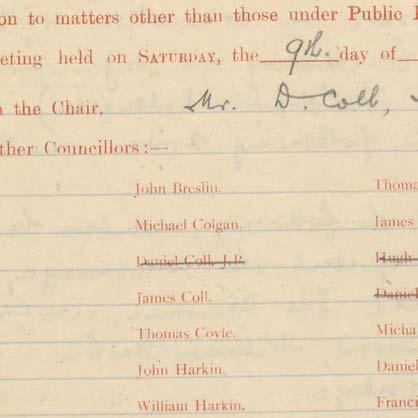 on to matters other than those under Public
eting held on SATURDAY, the 9th. day of
the Chair, Mr. D. Coll,
ther Councillors:—
John Breslin. Thoma
Michael Colgan. James
Daniel Coll, J.P. Hugh
James Coll. Daniel
Thomas Coyle. Micha
John Harkin. Daniel
William Harkin. Franci